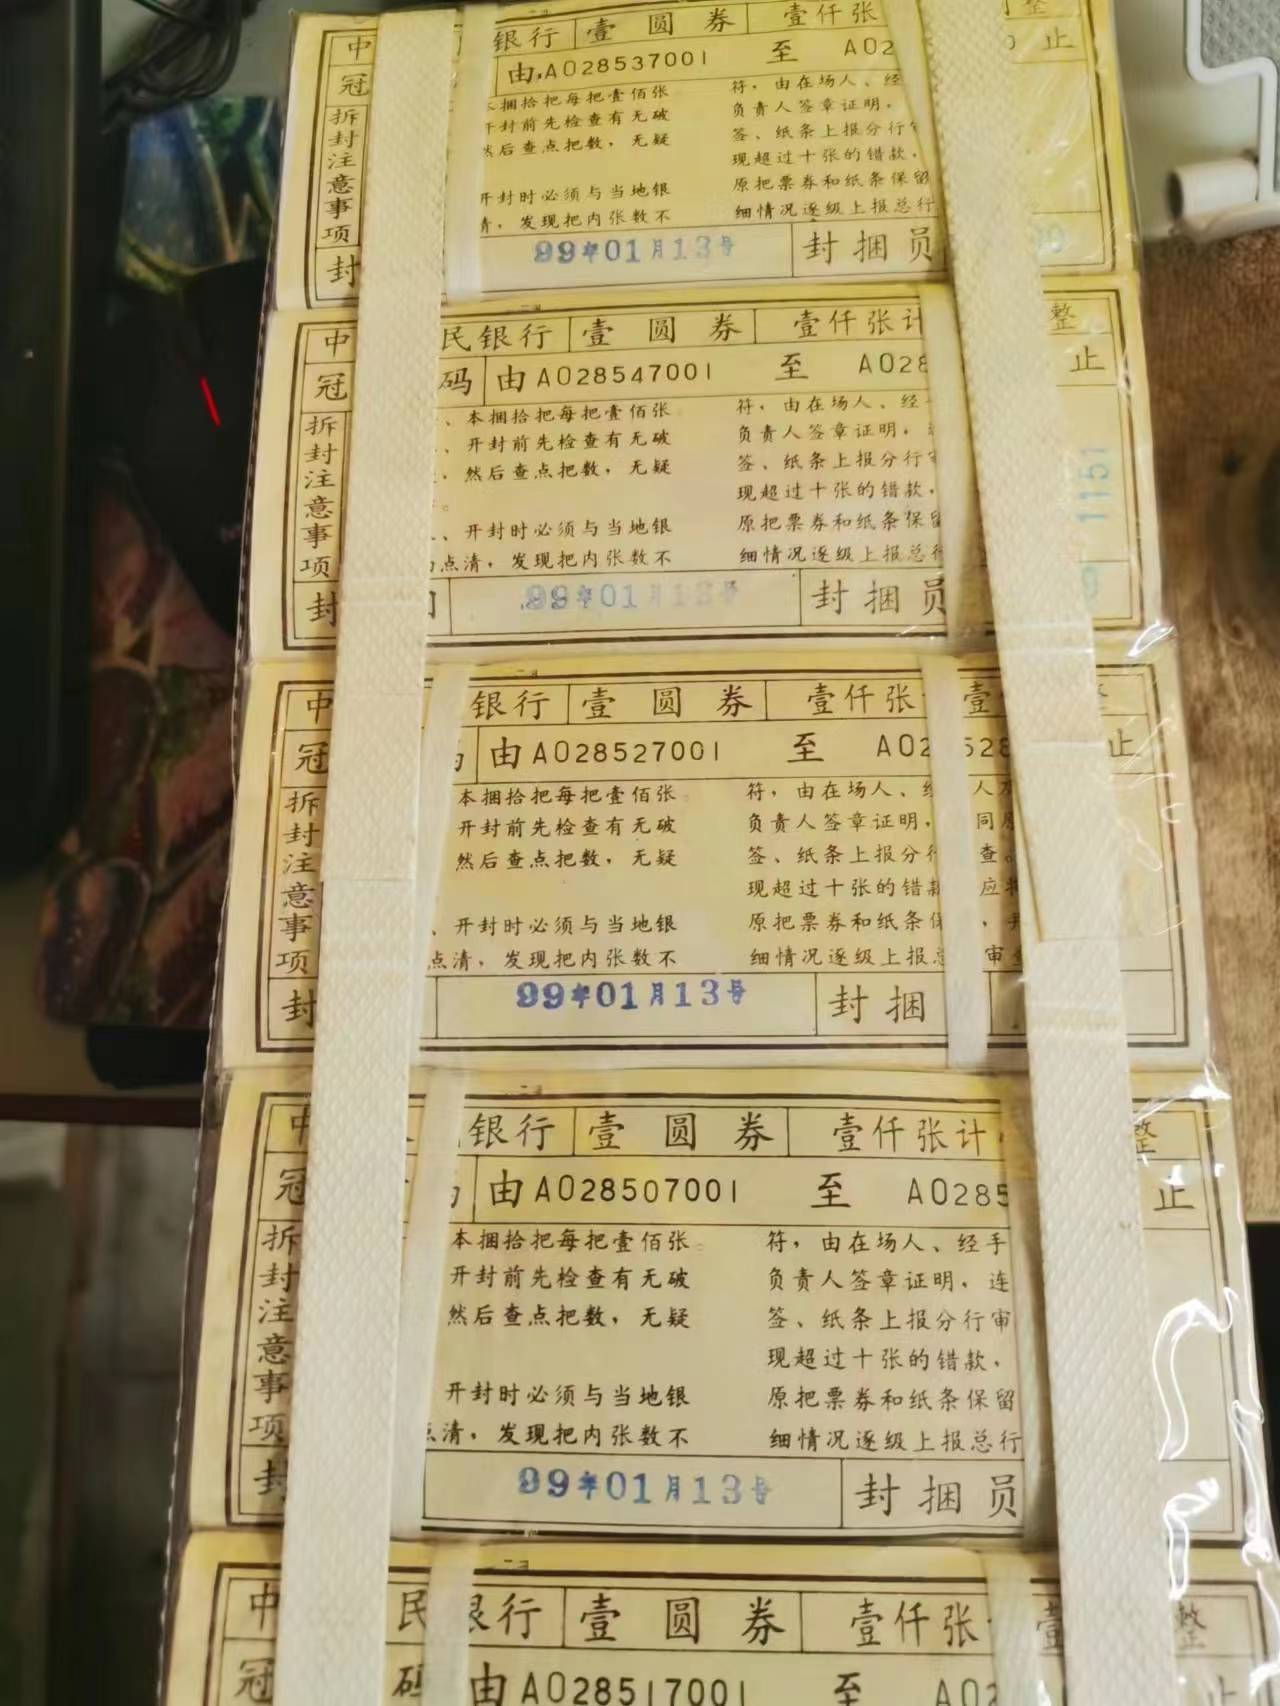 中 银行 壹圆券 壹仟张 整
冠 由 A028537001 至 A02 止
拆封注意事项
本捆拾把每把壹佰张
开封前先检查有无破
然后查点把数，无疑
开封时必须与当地银
清，发现把内张数不
符，由在场人、经
负责人签章证明，
签、纸条上报分行
现超过十张的错款，
原把票券和纸条保留
细情况逐级上报总行
封 99年01月13号 封捆员
中 民银行 壹圆券 壹仟张计 整
冠 码 由 A028547001 至 A028 止
拆封注意事项
、本捆拾把每把壹佰张
、开封前先检查有无破
，然后查点把数，无疑
。
、开封时必须与当地银
点清，发现把内张数不
符，由在场人、经手
负责人签章证明，
签、纸条上报分行审
现超过十张的错款，
原把票券和纸条保留
细情况逐级上报总行
1151
封 99年01月13号 封捆员
中 银行 壹圆券 壹仟张 壹
冠 由 A028527001 至 A02 528 止
拆封注意事项
本捆拾把每把壹佰张
开封前先检查有无破
然后查点把数，无疑
、开封时必须与当地银
点清，发现把内张数不
符，由在场人、经 人
负责人签章证明， 同
签、纸条上报分行 查。
现超过十张的错款 应
原把票券和纸条保 ，
细情况逐级上报总 审
封 99年01月13号 封捆
中 银行 壹圆券 壹仟张计 整
冠 由 A028507001 至 A0285 止
拆封注意事项
本捆拾把每把壹佰张。
开封前先检查有无破
然后查点把数，无疑
开封时必须与当地银
点清，发现把内张数不
符，由在场人、经手
负责人签章证明，连
签、纸条上报分行审
现超过十张的错款，
原把票券和纸条保留
细情况逐级上报总行
封 99年01月13号 封捆员
中 民银行 壹圆券 壹仟张 壹 整
冠 码 由 A028517001 至 A02 止